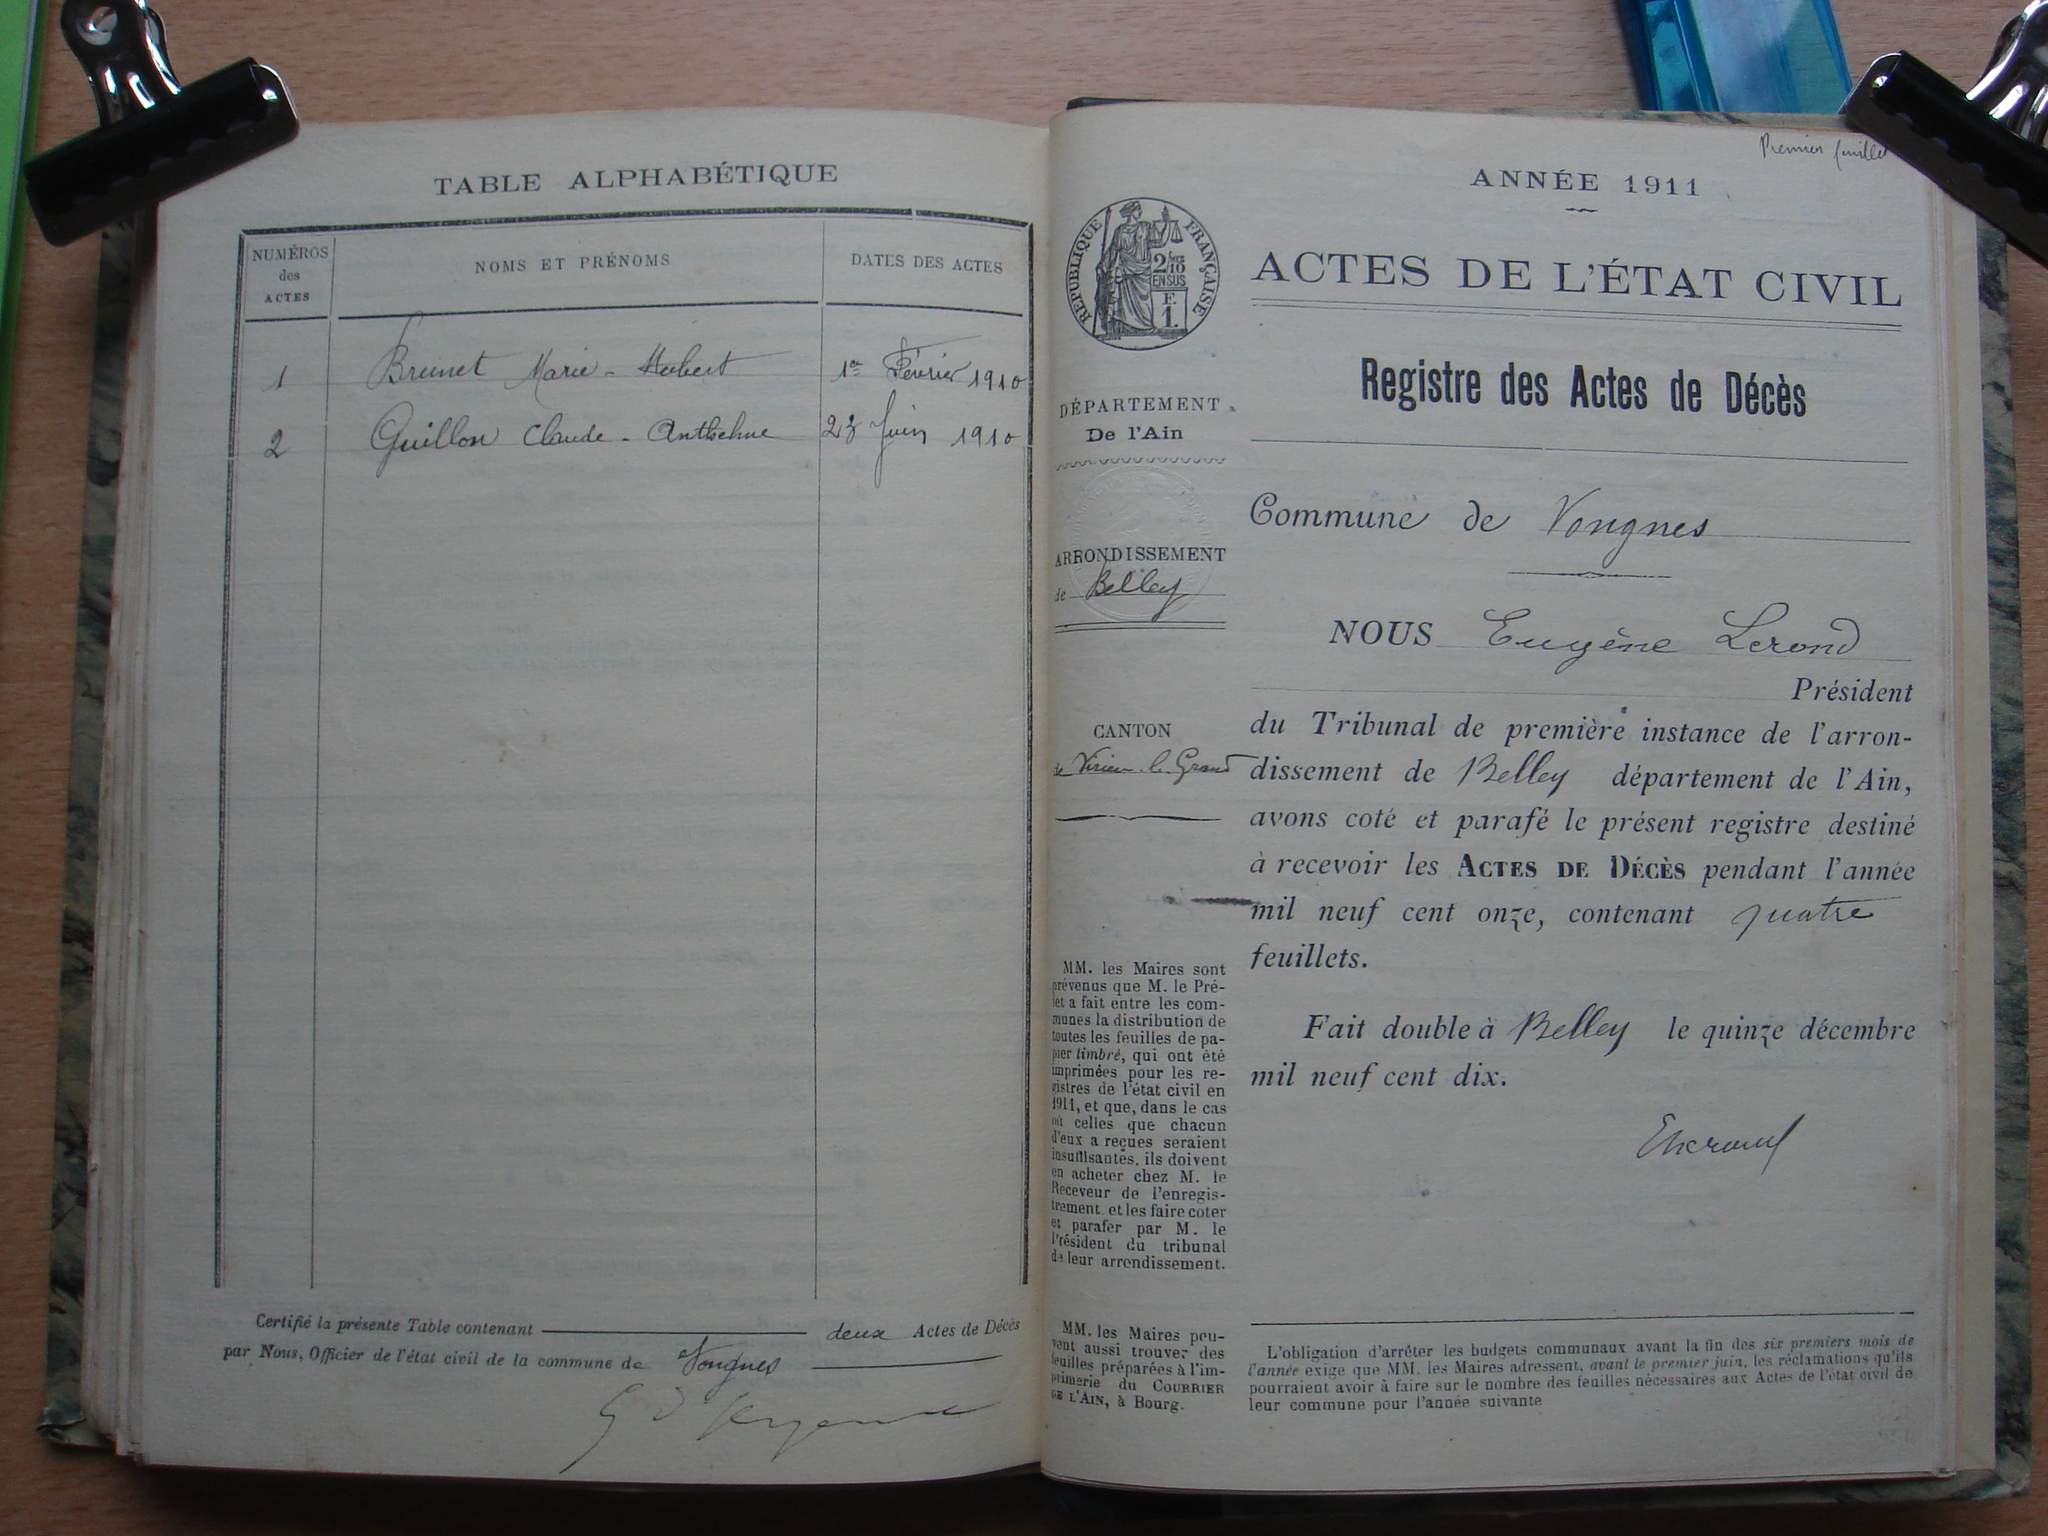 TABLE ALPHABÉTIQUE
NUMÉROS
des
ACTES
NOMS ET PRÉNOMS
DATES DES ACTES
1 Brunet Marie - Hubert 1er Février 1910
2 Guillon Claude - Anthelme 23 Juin 1910
Certifié la présente Table contenant deux Actes de Décès
par Nous, Officier de l'état civil de la commune de Vongnes
Premier feuillet
ANNÉE 1911
RÉPUBLIQUE FRANÇAISE
2/10
EN SUS
F.
1.
ACTES DE L'ÉTAT CIVIL
Registre des Actes de Décès
DÉPARTEMENT
De l'Ain
ARRONDISSEMENT
de Belley
CANTON
de Virieu-le-Grand
MM. les Maires sont
prévenus que M. le Pré-
fet a fait entre les com-
munes la distribution de
toutes les feuilles de pa-
pier timbré, qui ont été
imprimées pour les re-
gistres de l'état civil en
1911, et que, dans le cas
où celles que chacun
d'eux a reçues seraient
insuffisantes, ils doivent
en acheter chez M. le
Receveur de l'enregis-
trement et les faire coter
et parafer par M. le
Président du tribunal
de leur arrondissement.
MM. les Maires peu-
vent aussi trouver des
feuilles préparées à l'im-
primerie du COURRIER
DE L'AIN, à Bourg.
Commune de Vongnes
NOUS Eugène Lerond
Président
du Tribunal de première instance de l'arron-
dissement de Belley département de l'Ain,
avons coté et parafé le présent registre destiné
à recevoir les ACTES DE DÉCÈS pendant l'année
mil neuf cent onze, contenant quatre
feuillets.
Fait double à Belley le quinze décembre
mil neuf cent dix.
ELerond
L'obligation d'arrêter les budgets communaux avant la fin des six premiers mois de
l'année exige que MM. les Maires adressent, avant le premier juin, les réclamations qu'ils
pourraient avoir à faire sur le nombre des feuilles nécessaires aux Actes de l'état civil de
leur commune pour l'année suivante